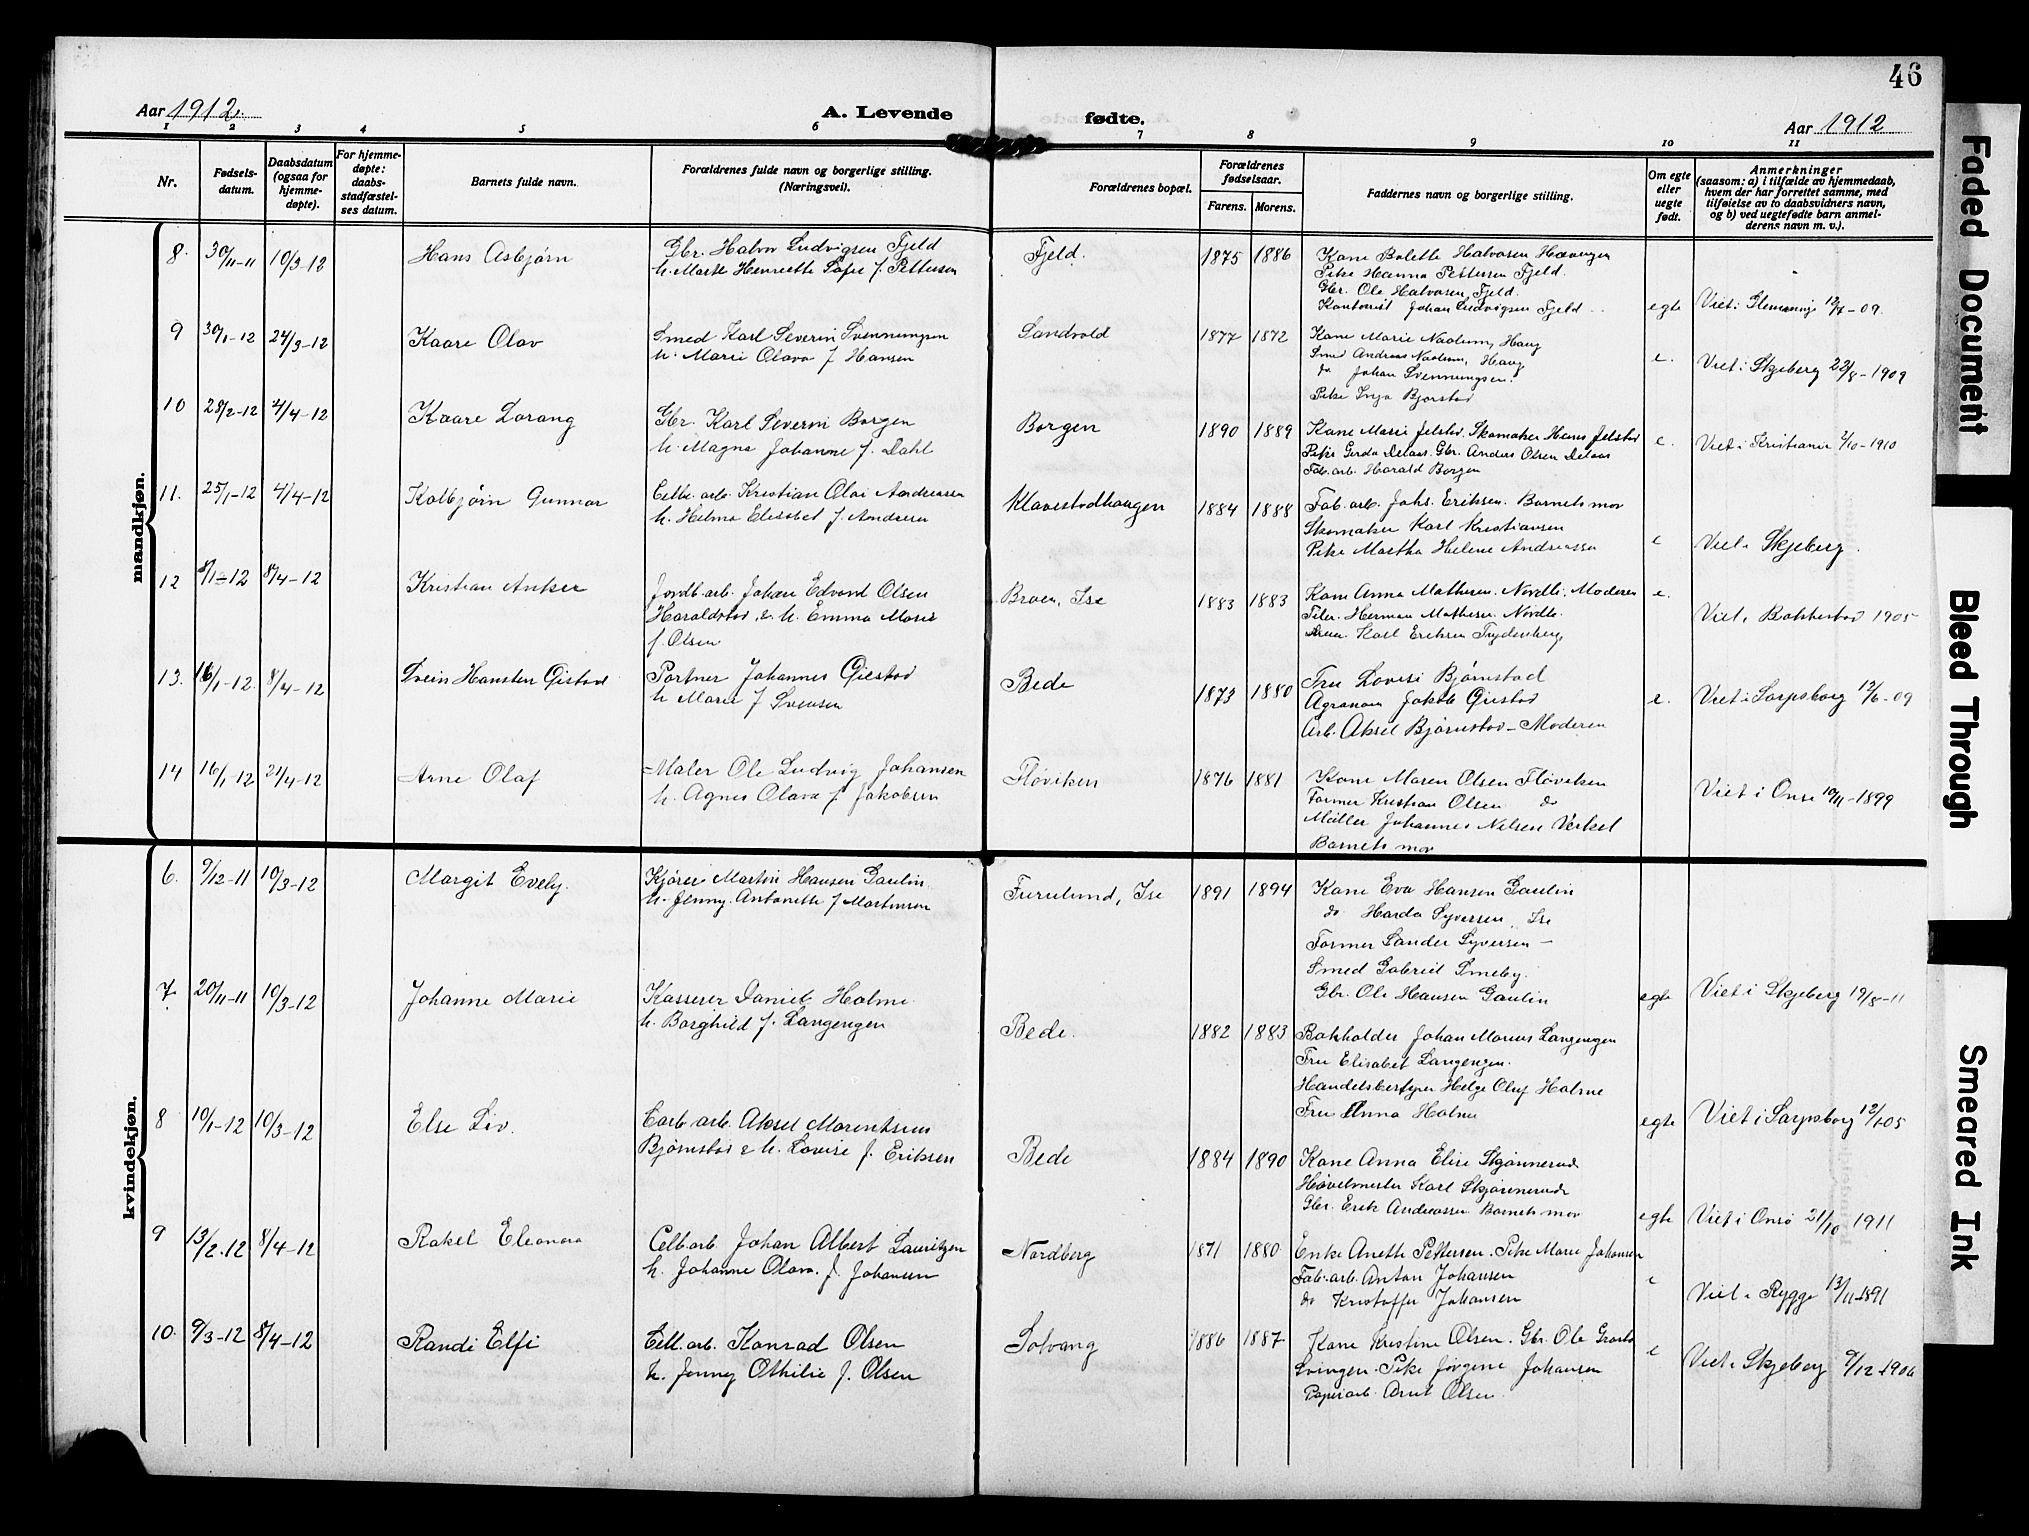 46
Aar 1912.
A. Levende
fødte.
Aar 1912
1 2 3 4 5 6 7 8 9 10 11
Nr.
Fødsels-
datum.
Daabsdatum
(ogsaa for
hjemme-
døpte).
For hjemme-
døpte:
daabs-
stadfæstel-
ses datum.
Barnets fulde navn.
Forældrenes fulde navn og borgerlige stilling.
(Næringsvei).
Forældrenes bopæl.
Forældrenes
fødselsaar.
Farens. Morens.
Faddernes navn og borgerlige stilling.
Om egte
eller
uegte
født.
Anmerkninger
(saasom: a) i tilfælde av hjemmedaab,
hvem der har forrettet samme, med
tilføielse av to daabsvidners navn,
og b) ved uegtefødte barn anmel-
derens navn m. v.).
mandkjøn.
8. 30/11-11 10/3-12 Hans Asbjørn
Gbr. Halvor Ludvigsen Fjeld
h. Marte Henriette Sofie f. Pettersen
Fjeld. 1875 1886
Kone Bolette Halvorsen Haavengen
Pike Hanna Pettersen Fjeld.
Gbr. Ole Halvorsen, Fjeld.
Kontorist Johan Ludvigsen Fjeld
egte Viet i Glemminge -09.
9 30/1-12 24/3-12 Kaare Olav
Smed Karl Severin Svenningsen
h. Marie Olava f. Hansen
Sandvold 1877 1872
Kone Marie Naolum, Haug
Smed Andreas Naolum, Haug
do Johan Svenningsen.
Pike Inga Bjørstad
e. Viet i Skjeberg 22/8-1909
10 28/2-12 4/4-12 Kaare Lorang
Gbr. Karl Severin Borgen
h. Magna Johanne f. Dahl
Borgen 1890 1889
Kone Marie Jelstad. Skomaker Hans Jelstad
Pike Gerda Delaas. Gbr. Anders Olsen Delaas
Fab. arb. Harald Borgen
e. Viet i Kristiania 2/10-1910
11. 25/1-12 4/4-12 Kolbjørn Gunnar
Cellc. arb. Kristian Olai Andreassen
h. Helma Elisabet f. Andersen
Klavestadhaugen 1884 1888
Fab. arb. Johs. Eriksen. Barnets mor
Skomaker Karl Kristiansen
Pike Martha Helene Andreassen
e Viet i Skjeberg.
12 8/1-12 8/4-12 Kristian Anker
Jordb. arb. Johan Edvard Olsen
Haraldstad, & h. Emma Marie
f. Olsen
Braen, Ise 1883 1883
Kone Anna Mathesen. Nordli. Moderen
Herman Mathesen Nordli.
Karl Eriksen Frydenberg
e. Viet i Bakkestad 1905
13. 16/1-12. 8/4-12 Svein Hansten Gistad
Portner Johannes Giestad
h. Marie f. Svensen
Bede 1873 1880
Fru Lovise Bjørnstad
Agronom Jakob Giestad
Arb. Aksel Bjørnstad - Moderen
e. Viet i Sarpsborg 12/6-09
14 16/1-12 21/4-12 Arne Olaf
Maler Ole Ludvig Johansen
h. Agnes Olava f. Jakobsen
Fløviken 1876 1881
Kone Maren Olsen Fløviken
Former Kristian Olsen do
Møller Johannes Nilsen Verket
Barnets mor
Viet i Onsø 10/11-1899
kvindekjøn.
6. 9/12-11 10/3-12 Margit Evely.
Kjører Martin Hansen Gaulin
h. Jenny. Antonette f. Martinsen
Furulund, Ise 1891 1894
Kone Eva Hansen Gaulin
do Harda Syversen, Ise
Former Sander Syversen -
Smed Gabriel Smeby.
Gbr. Ole Hansen Gaulin
egte Viet i Skjeberg 19/8-11
7. 20/11-11 10/3-12 Johanne Marie
Kasserer Daniel Holme
h. Borghild f. Langengen
Bede. 1882 1883
Bokholder Johan Marius Langengen
Fru Elisabet Langengen.
Handelsbestyrer Helge Oluf Holme
Fru Anna Holme
egte Viet i Sarpsborg 12/1-05
8 10/1-12 10/3-12 Else Liv.
Carb. arb. Aksel Marentsius
Bjørnstad & h. Lovise f. Eriksen
Bede 1884 1890
Kone Anna Elise Skjønnerud
Høvelmester Karl Skjønnerud
Gbr. Erik Andreassen Barnets mor
egte Viet i Onsø 21/10 1911
9 13/2-12 8/4-12 Rakel Eleonora
Cell. arb. Johan Albert Lauritzen
h. Johanne Olava. f. Johansen
Nordberg 1871 1880
Enke Anette Pettersen. Pike Marie Johansen
Fab. arb. Anton Johansen
do Kristoffer Johansen
e Viet i Rygge 13/11-1891
10. 9/3-12 8/4-12 Randi Elfi
Cell. arb. Konrad Olsen
h. Jenny Othilie f. Olsen
Solvang 1886 1887
Kone Kristine Olsen. Gbr. Ole
Svingen. Pike Jørgine Johansen
Papirarb. Arnt Olsen.
e Viet i Skjeberg 9/12-1906
Faded Document
Bleed Through
Smeared Ink